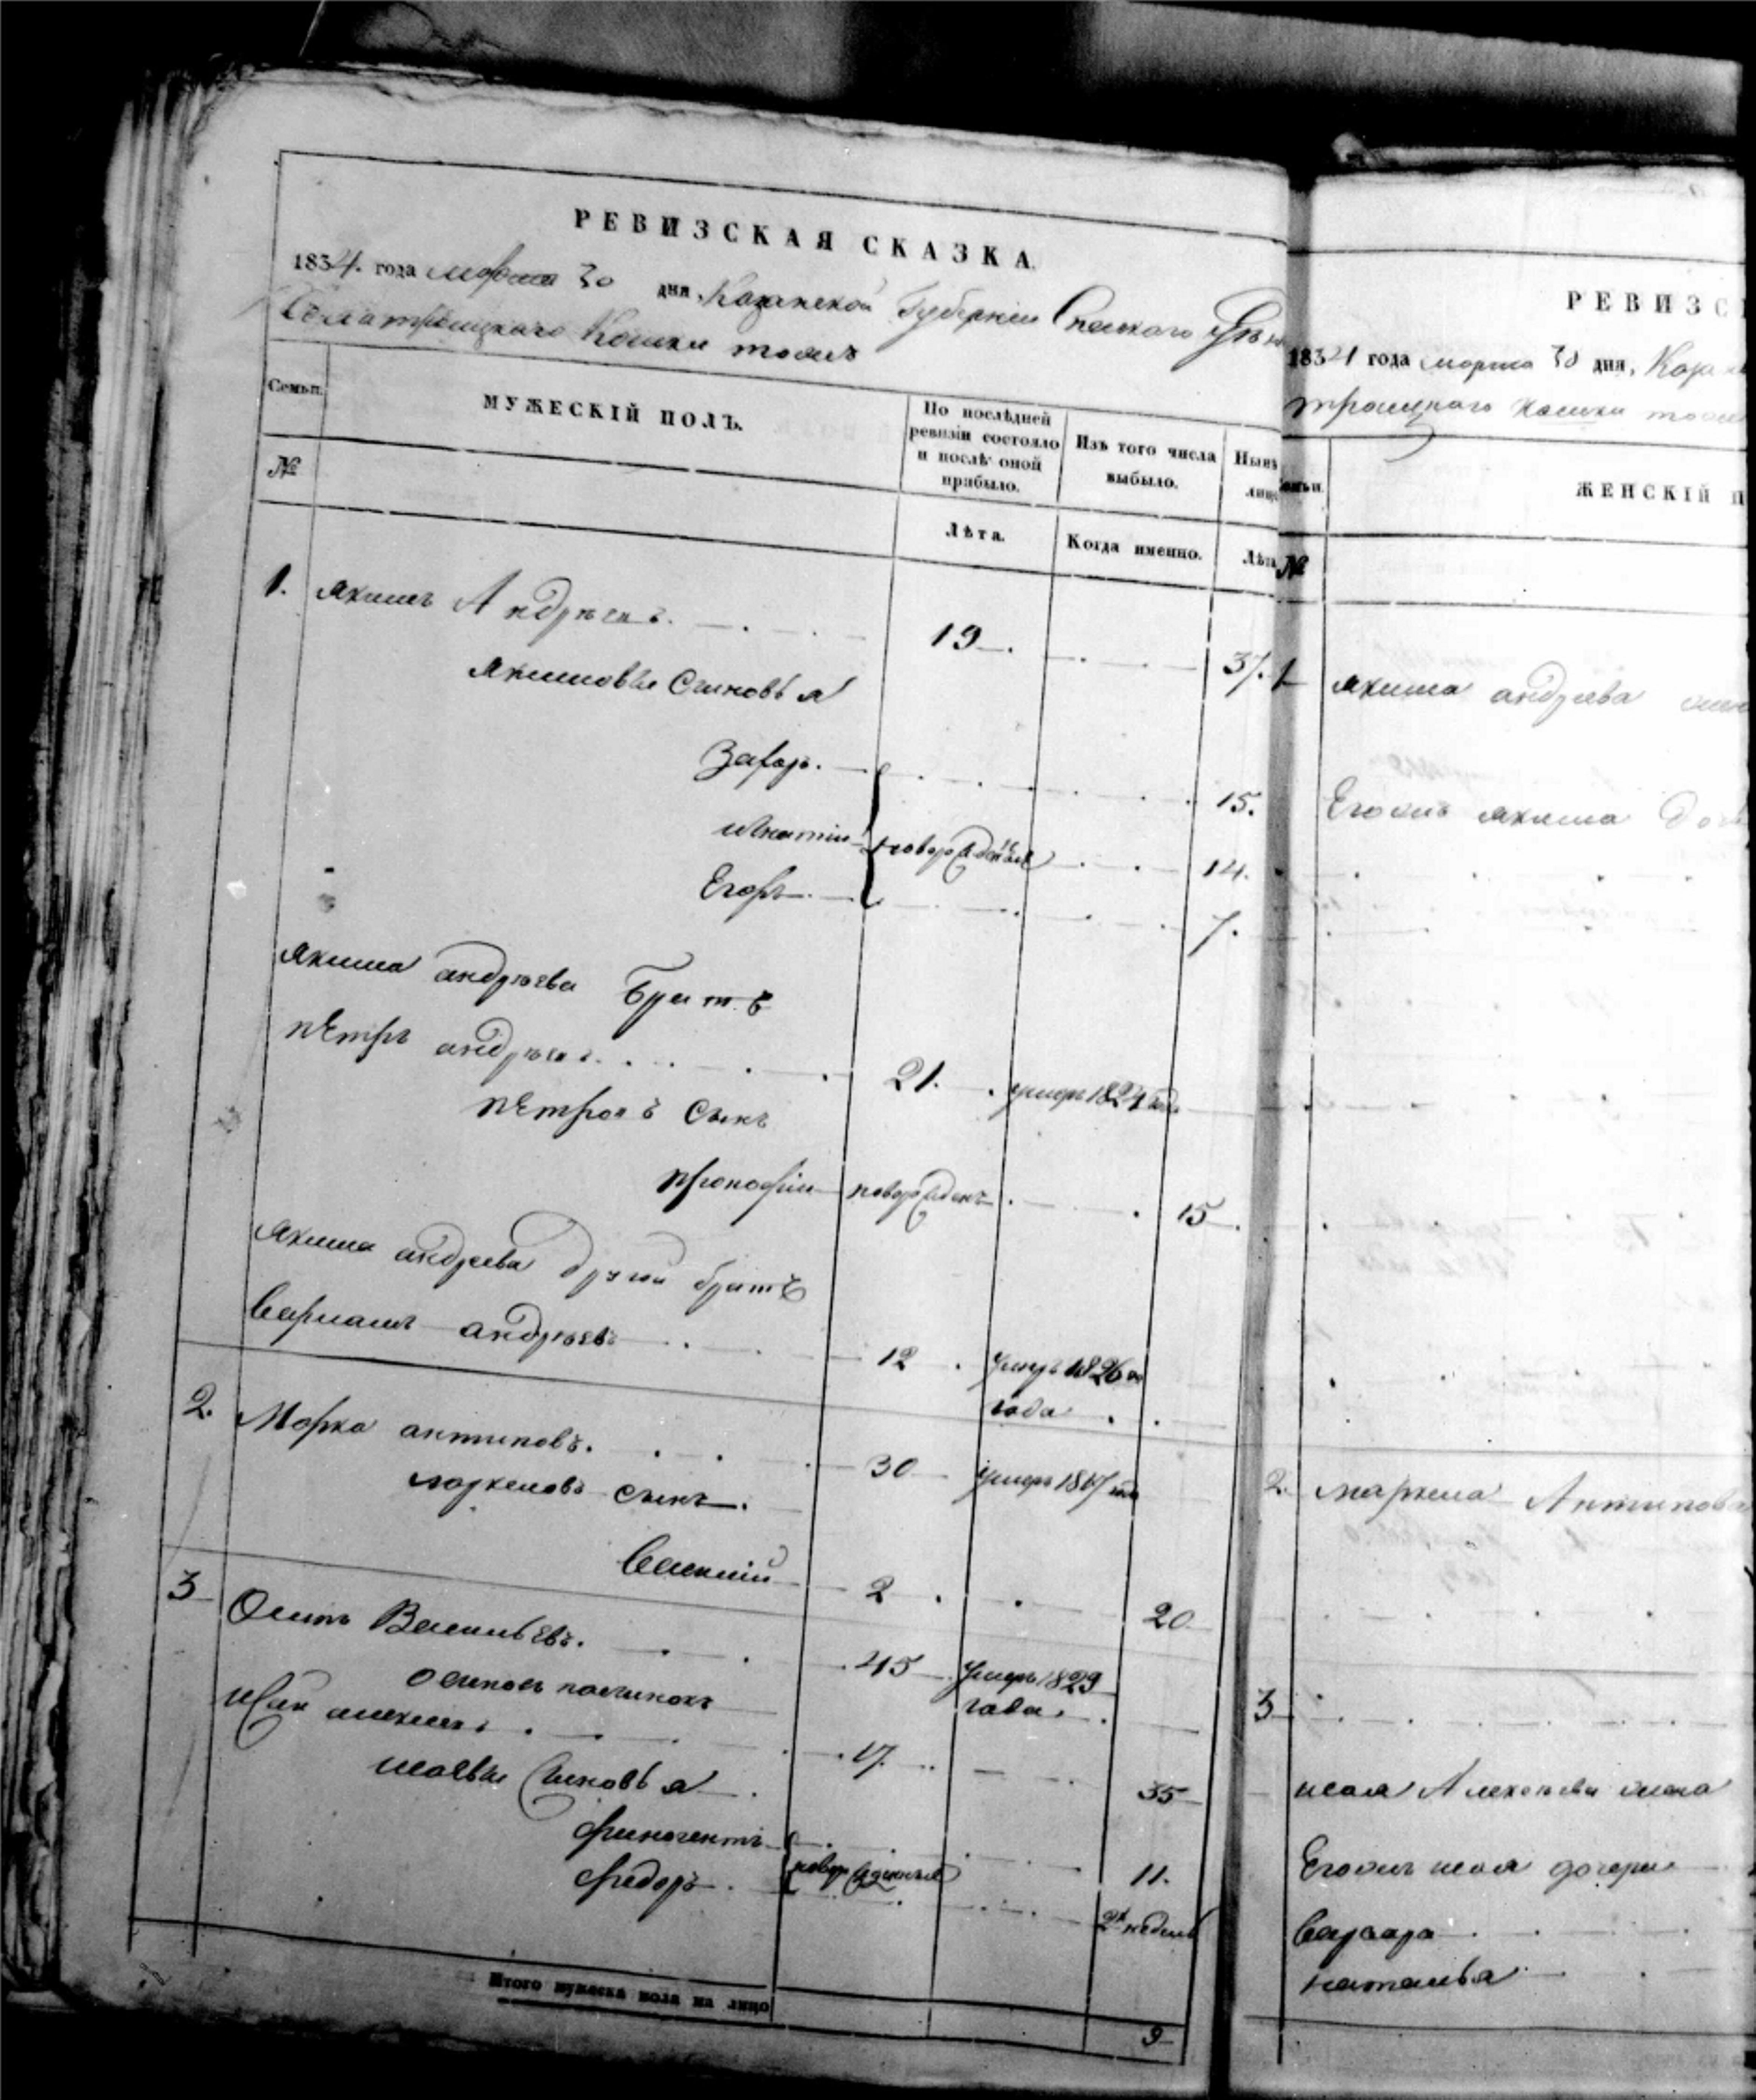 РЕВИЗСКАЯ СКАЗКА
1834. года марта 30 дня, Казанской Губернiи Спаского Уѣз
Села троицкаго Кошки тожъ
Семьи.
МУЖЕСКІЙ ПОЛЪ.
По послѣдней
ревизіи состояло
и послѣ оной
прибыло.
Изъ того числа
выбыло.
Нынѣ
лицо
№
Лѣта.
Когда именно.
Лѣта
1. якимъ Андрѣевъ. 19 37.
якимовы Сыновья
Захаръ. 15.
игнатiи новорожденые 14.
Егоръ 7.
якима андрѣева братъ
пЕтръ андрѣевъ 21. умеръ 1824 года
пЕтровъ Сынъ
прокофiи новорожденъ 15
якима андреева другой братъ
Варламъ андрѣевъ 12 умеръ 1826 го
года
2. Марко антиповъ. 30 умеръ
маркеловъ сынъ.
Василiй 2 20
3 Осипъ ВасильЕвъ. 45 умеръ 1829
года.
осиповъ пасынокъ
алексеевъ 17. 35
исаевы Сыновья
финогентъ 11.
федоръ новорожденые 2 недель
Итого мужеска пола на лицо 9
РЕВИЗС
1834 года марта 30 дня, Каза
троицкаго кошки тож
Семьи.
ЖЕНСКІЙ П
№
1 якима андреева жена
Егожъ якима доч
2. маркела Антипова
3
исая Алексѣева жена
Егожъ исая дочери
Варвара
наталья